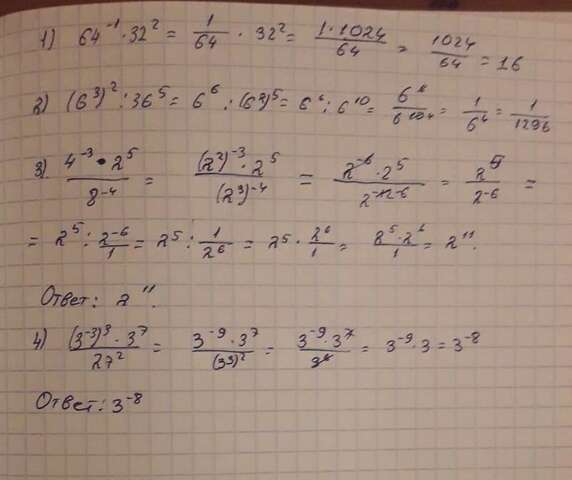 1) 64⁻¹ · 32² = 1/64 · 32² = 1·1024/64 = 1024/64 = 16
2) (6³)² : 36⁵ = 6⁶ : (6²)⁵ = 6⁶ : 6¹⁰ = 6⁶/6¹⁰ ⁴ = 1/6⁴ = 1/1296
3) 4⁻³ · 2⁵/8⁻⁴ = (2²)⁻³ · 2⁵/(2³)⁻⁴ = 2⁻⁶ · 2⁵/2⁻¹² ⁻⁶ = 2⁵/2⁻⁶ =
= 2⁵ : 2⁻⁶/1 = 2⁵ : 1/2⁶ = 2⁵ · 2⁶/1 = 2⁵·2⁶/1 = 2¹¹.
Ответ: 2¹¹.
4) (3⁻³)³ · 3⁷/27² = 3⁻⁹ · 3⁷/(3³)² = 3⁻⁹ · 3⁷/3⁶ = 3⁻⁹ · 3 = 3⁻⁸
Ответ: 3⁻⁸